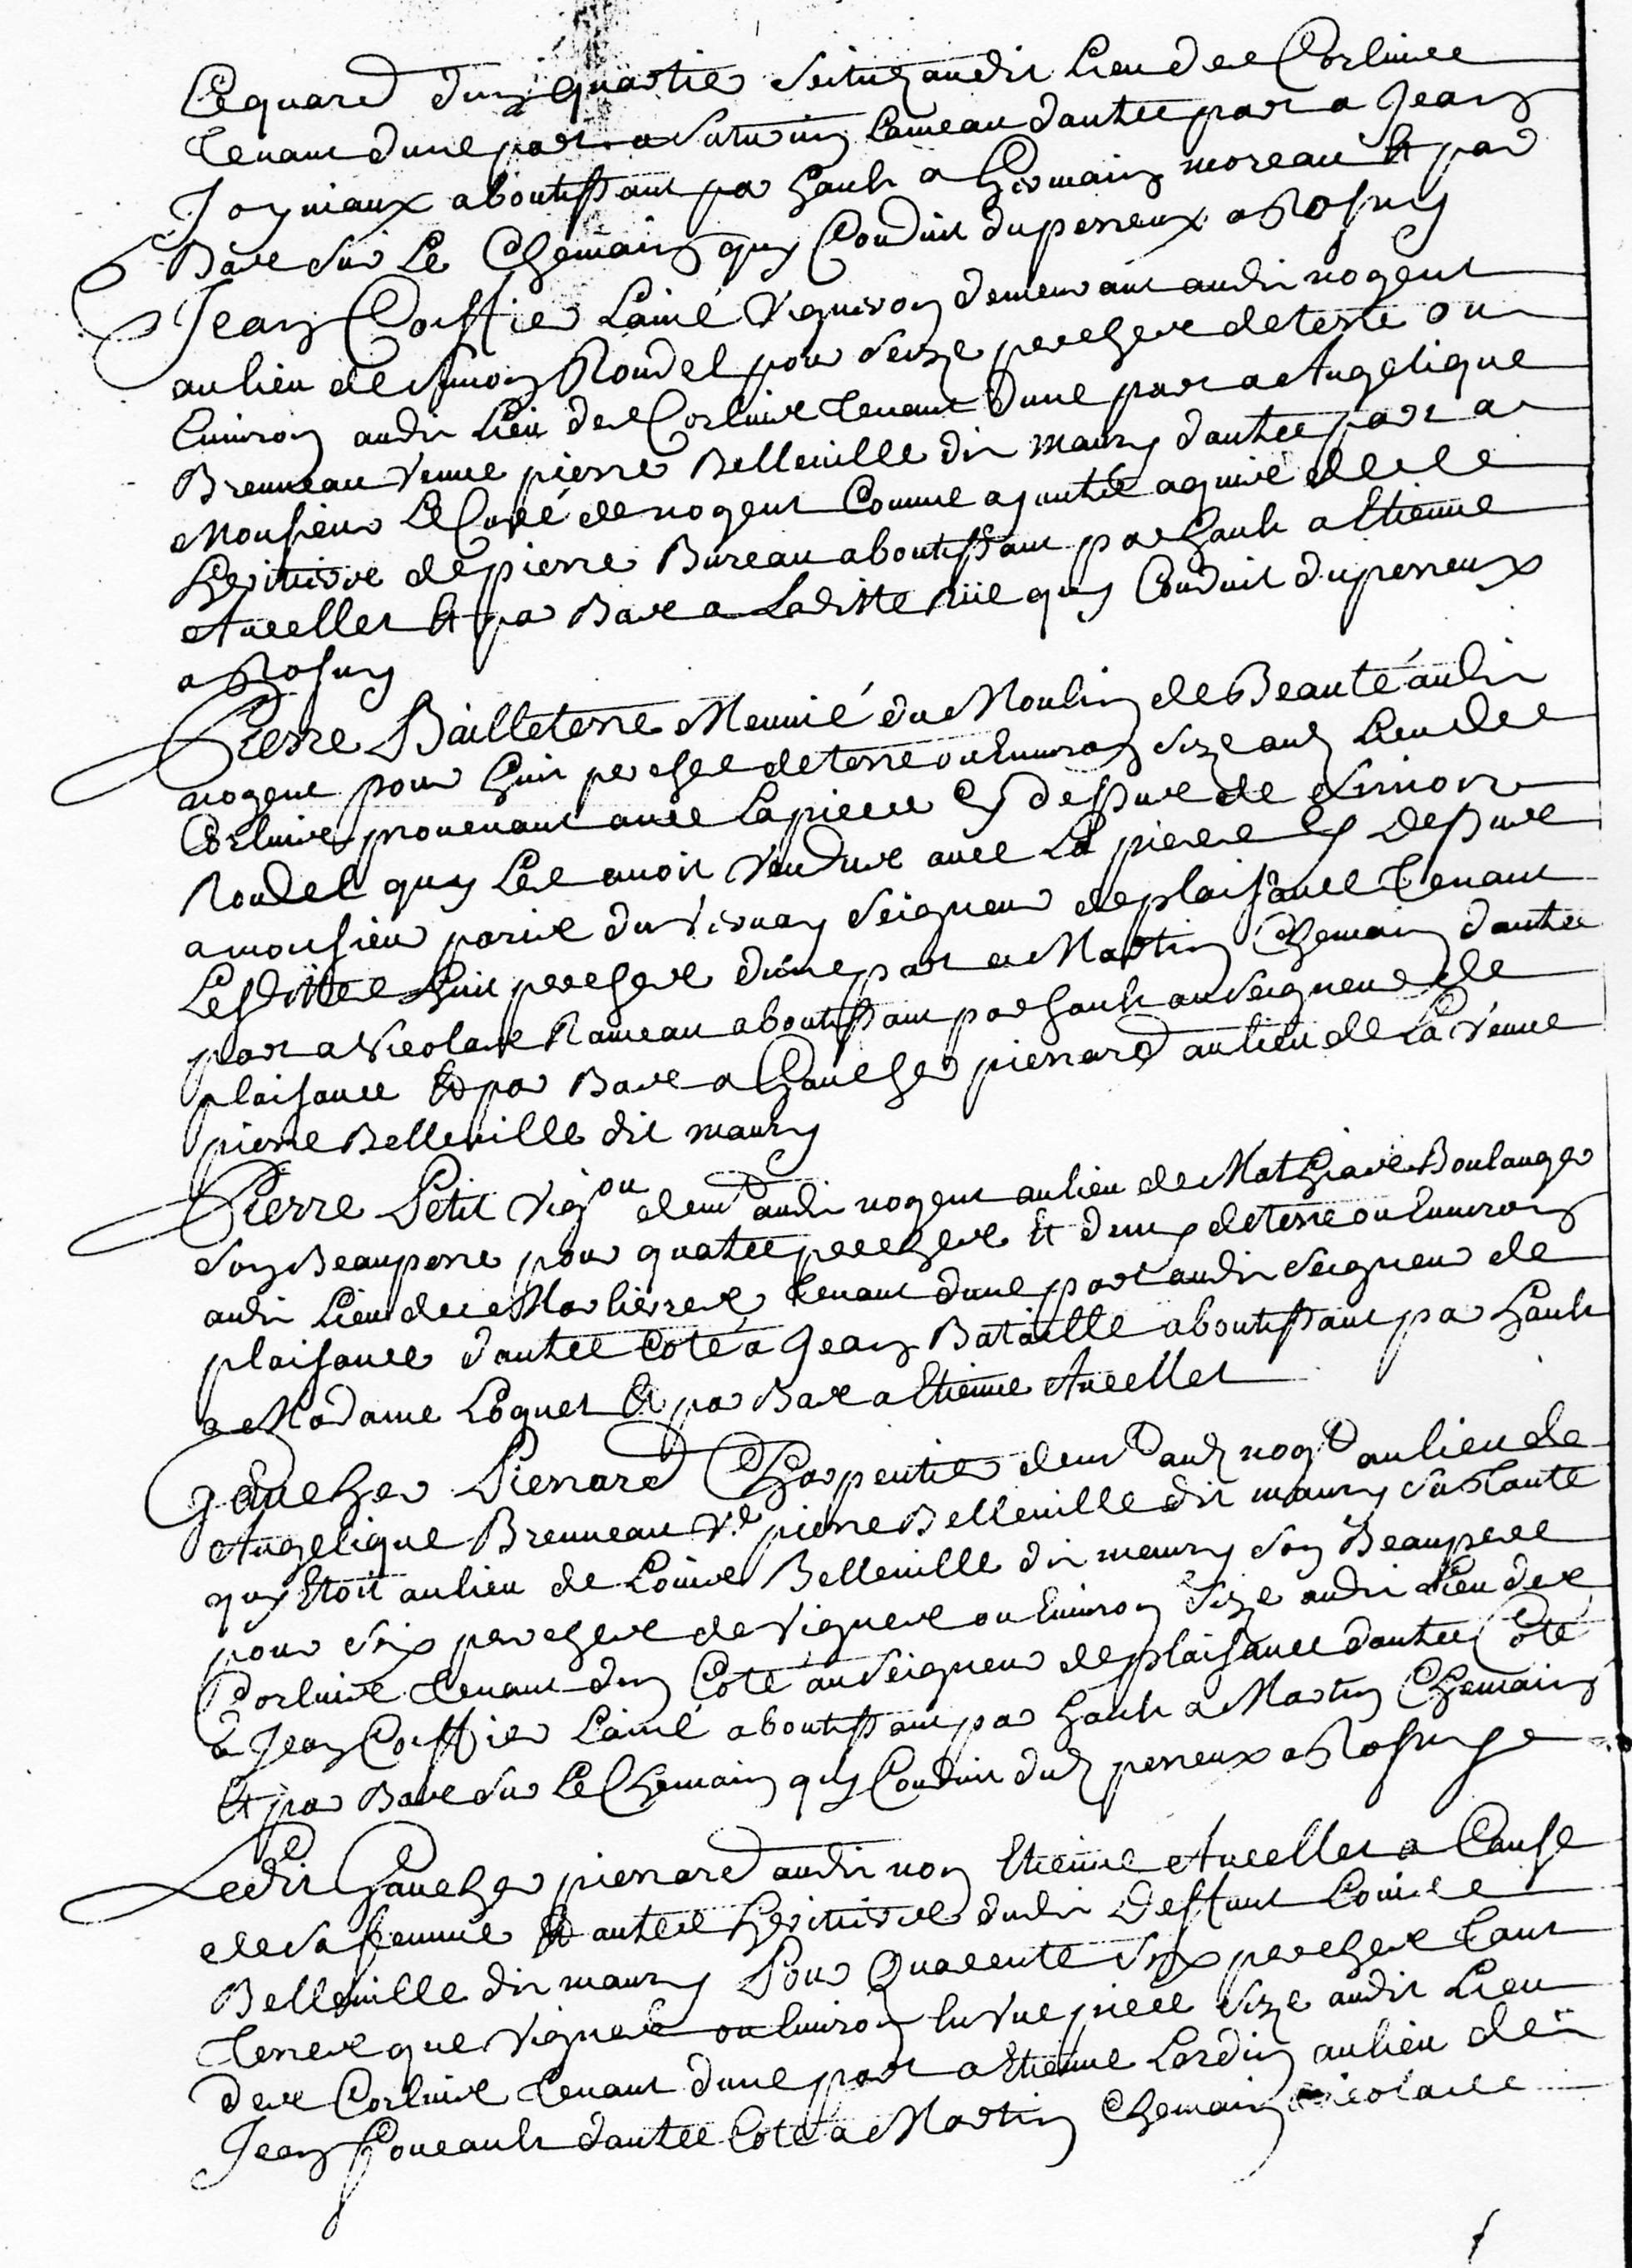 Lequard dun quartier scitué audit Lieu des Corluis
Tenant dune part a Saturnin Lameau dautre part a Jean
Joyniaux aboutissant par hault a Germain moreau Et par
Bas sur Le Chemain quy Conduit du perreux a Rosny
Jean Coiffier Lainé Vigneron demeurant audit nogent
au lieu de Simon Roudel pour seize perches de terre ou
Environ audit Lieu des Corluis tenant dune part a Angelique
Brenneau veuve pierre Belleville dit maury dautre part a
Monsieur Le Curé de nogent Comme ayant aquis des
heritiers de pierre Bureau aboutissant par hault a Etienne
Aucellet Et par Bas a Laditte rüe quy Conduit du perreux
a Rosny
Pierre Bailleterre Meunié du Moulin de Beauté audit
nogent pour huit perches de terre ou Environ size aud Lieu des
Corluis provenant avec La piece Cy dessus de Simon
Roudel quy Les avoit Vendus avec La piece Cy Dessus
a monsieur paris du Vernay Seigneur de plaisance Tenant
Lesdittes huit perches dune part a Martin Chemain dautre
part a Nicolas Rameau aboutissant par hault au Seigneur de
plaisance Et par Bas a Gaucher pierrard au lieu de La veuve
pierre Belleville dit maury
Pierre Petit Vigon demt audit nogent au lieu de Mathias Boulanger
son Beaupere pour quatre perches Et demy de terre ou Environ
audit Lieu des Marlieres tenant dune part audit Seigneur de
plaisance dautre Coté a Jean Bataille aboutissant par hault
a Madame Loquet Et par Bas a Etienne Aucellet
Gaucher Pierrard Charpentier demt aud nogt au lieu de
Angelique Brenneau Ve pierre Belleville dit maury sa Tante
quy Etoit au lieu de Louis Belleville dit maury son Beaupere
pour six perches de Vignes ou Environ size audit Lieu des
Corluis Tenant dun Coté au Seigneur de plaisance dautre Coté
a Jean Coiffier Lainé aboutissant par hault a Martin Chemain
Et par Bas sur Le Chemain quy Conduit dud perreux a Rosny
Ledit Gaucher pierrard audit nom Etienne Aucellet a Cause
de sa femme Et autres heritiers dudit Deffunt Louis
Belleville dit maury Pour Quarente six perches tant
Terres que Vignes ou Environ En Une piece size audit Lieu
des Corluis Tenant dune part a Etienne Lerdin au lieu de
Jean Foucault dautre Coté a Martin Chemain Nicolas